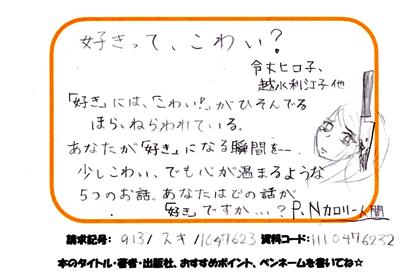 好きって、こわい?
令丈ヒロ子、
越水利江子他
「好き」には、「こわい!」がひそんでる
ほら、ねらわれている。
あなたが「好き」になる瞬間を…
少しこわい、でも心が温まるような
5つのお話。あなたはどの話が
「好き」ですか…? P.Nカロリー人間
請求記号: 913/スキ/1047623 資料コード:1110476232
本のタイトル・著者・出版社、おすすめポイント、ペンネームを書いてね☆